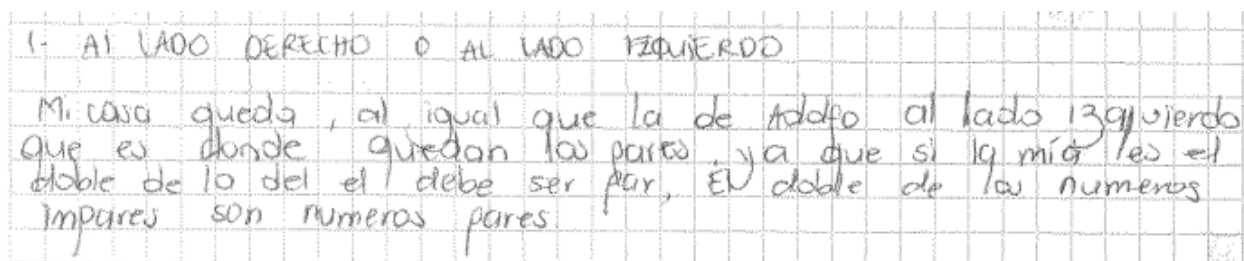 1- Al LADO DERECHO O AL LADO IZQUIERDO
Mi casa queda, al igual que la de Adolfo al lado izquierdo
que es donde quedan los pares, ya que si la mía es el
doble de lo del el debe ser par, El doble de los numeros
impares son numeros pares.